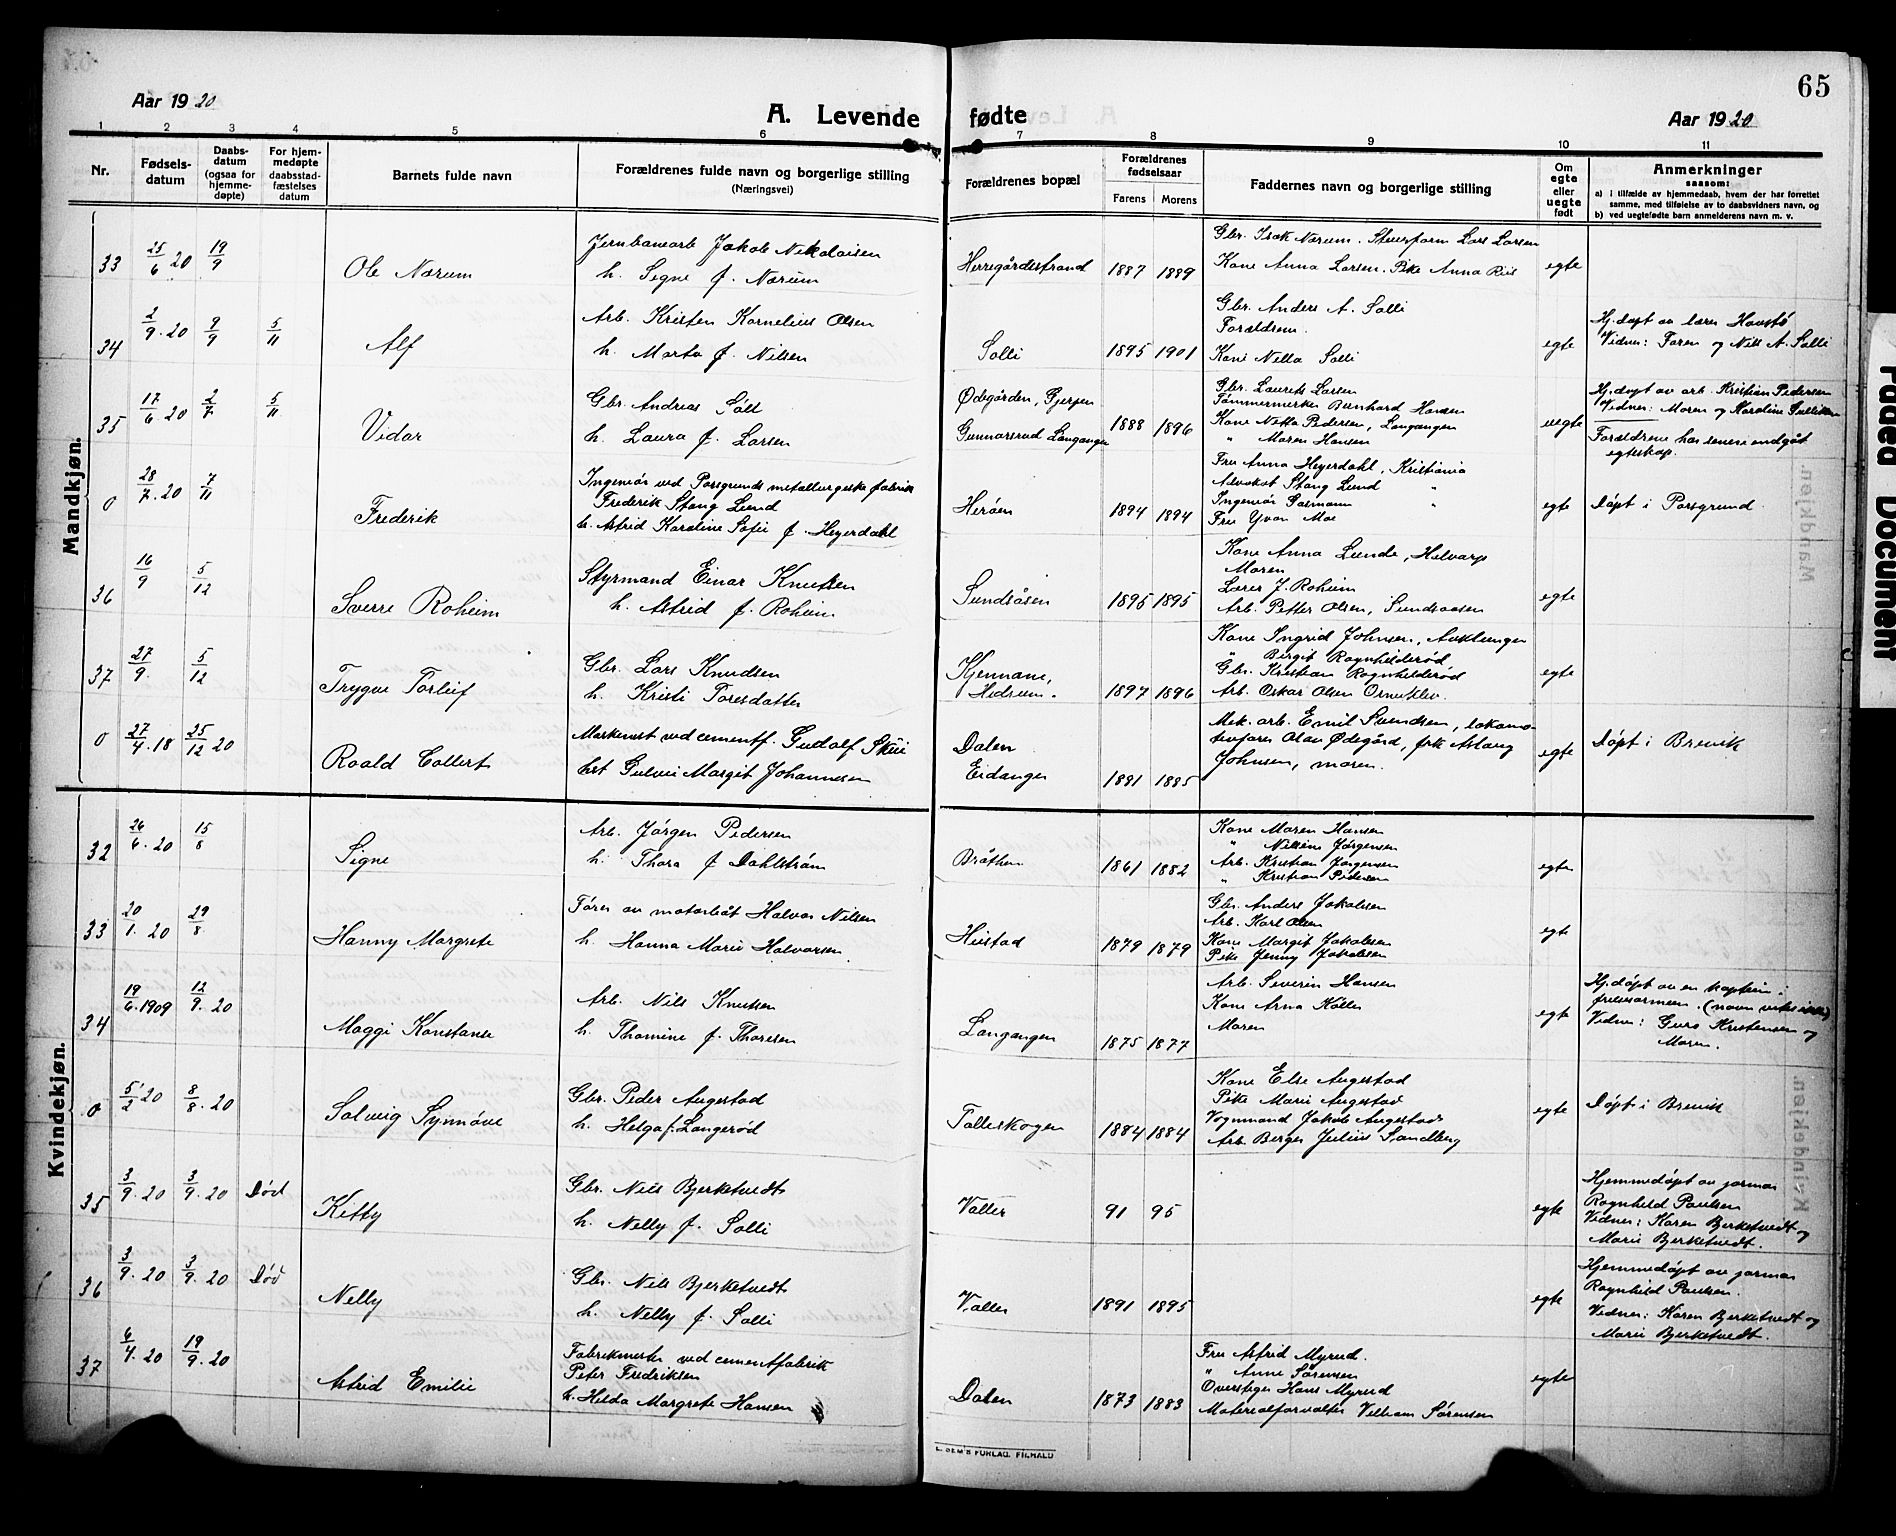 65
Aar 1920
A. Levende fødte
Aar 1920
1 2 3 4 5 6 7 8 9 10 11
Nr.
Fødsels-
datum
Daabs-
datum
(ogsaa for
hjemme-
døpte)
For hjem-
medøpte
daabsstad-
fæstelses
datum
Barnets fulde navn
Forældrenes fulde navn og borgerlige stilling
(Næringsvei)
Forældrenes bopæl
Forældrenes
fødselsaar
Farens Morens
Faddernes navn og borgerlige stilling
Om
egte
eller
uegte
født
Anmerkninger
saasom:
a) i tilfælde av hjemmedaab, hvem der har forrettet
samme, med tilføielse av to daabsvidners navn, og
b) ved uegtefødte barn anmelderens navn m. v.
Mandkjøn.
33 25/6 20 19/9 Ole Nærum
Jernbanearb Jakob Nikolaisen
h. Signe f. Nærum
Herregårdsstrand 1887 1889
Gbr. Isak Nærum. Lars Larsen
Kone Anna Larsen. Pike Anna Riis
egte
34 2/9 20 9/9 5/11 Alf
Arb. Kristen Kornelius Olsen
h. Marta f. Nilsen
Solli 1895 1901
Gbr. Anders A. Solli
Forældrene.
Kone Nella Solli
egte
Hj.døpt av lærer Haustø
Vidner: Faren og Nils A. Solli
35 17/6 20 2/7 5/11 Vidar
Gbr. Andreas Sølt
h. Laura f. Larsen
Ødegården, Gjerpen
Gunnarsrød Langangen 1888 1896
Gbr. Laurits Larsen
Tømmermerker Bernhard Hansen
Kone Netta Pedersen, Langangen
" Maren Hansen
uegte
Hj.døpt av arb. Kristian Pedersen
Vidner: Moren og Karoline
Forældrene har senere indgåt
egteskap.
0 28/7 20 7/11 Frederik
Ingeniør ved Porsgrunds metallurgiske fabrik
Frederik Stang Lund
h. Astrid Karoline Sofie f. Heyerdahl
Herøen 1894 1894
Fru Anna Heyerdahl, Kristiania
Advokat Stang Lund "
Ingeniør "
Fru Yvon Moe
egte
Døpt i Porsgrund.
36 16/9 5/12 Sverre Roheim
Styrmand Einar Knutsen
h. Astrid f. Roheim
Sundsåsen 1895 1895
Kone Anna Lunde, Helvarp
Moren
Lærer J. Roheim
Arb. Petter Olsen, Sundsaasen
egte
37 27/9. 5/12 Trygve Torleif
Gbr. Lars Knudsen
h. Kristi Toresdatter
Kjennane,
Hedrum. 1897 1896
Kone Ingrid Johnsen, Auklungen
" Birgit Rognhilderød
Gbr. Kristian Rognhilderød
Arb. Oskar Olsen Ormeklev.
egte
0 27/4 18 25/12 20 Roald Collert
ved cementf. Gudolf Skii
hst Gulvei Margit Johannesen
Dalen
Eidanger 1881 1885
Mek. arb. Emil Svendsen, lokomo-
tivfører Olav Ødegård, frk Aslaug
Johnsen, moren.
egte
Døpt i Brevik
Kvindekjøn.
32 26/6 20 15/8 Signe
Arb. Jørgen Pedersen
h. Thora f. Dahlstrøm
Bråthen 1861 1882
Kone Maren Hansen
" Nilsine Jørgensen
Arb. Kristian Jørgensen
" Kristian Pedersen
egte
33 20/1 20 29/8 Hanny Margrete
Fører av motorbåt Halvor Nilsen
h. Hanna Marie Halvorsen.
Heistad 1879 1879
Gbr. Anders Jakobsen
Arb. Karl Olsen
Kone Margit Jakobsen
Pike Jenny Jakobsen
egte
34 19/6 1909 12/9 20 Maggi Konstanse
Arb. Nils Knutsen
h. Thomine f. Thoresen
Langangen 1875 1877
Arb. Severin Hansen
Kone Anna Kollen
Moren
egte
Hj.døpt av en kaptein i
frelsesarmeen. (navn vites ikke)
Vidner: Guro Kristensen og
Moren.
0 5/2 20 8/8 20 Solveig Synnøve
Gbr. Peder Augestad
h. Helga f. Langerød
Tolleskogen 1884 1884
Kone Else Augestad
Pike Marie Augestad
Vognmand Jakob Augestad
Arb. Berger Julius Sandberg
egte
Døpt i Brevik
35 3/9 20 3/9 20 Død Kitty
Gbr. Nils Bjerketvedt
h. Nelly f. Solli
Valler 91 95
egte
Hjemmedøpt av jormor
Rognhild Paulsen
Vidner: Karen Bjerketvedt og
Marie Bjerketvedt.
36 3/9 20 3/9 20 Død Nelly
Gbr. Nils Bjerketvedt
h. Nelly f. Solli
Valler 1891 1895
egte
Hjemmedøpt av jormor
Rognhild Paulsen.
Vidner: Karen Bjerketvedt og
Marie Bjerketvedt.
37 6/4 20 19/9 20 Astrid Emilie
Fabrikmester ved cementfabrik
Peter Fredriksen
h. Helda Margrete Hansen
Dalen 1873 1883
Fru Astrid Myrud.
" Anne Sørensen
Overstiger Hans Myrud
Materialforvalter Vilhelm Sørensen
egte
E. SEM'S FORLAG, F.HALD
Faded Document